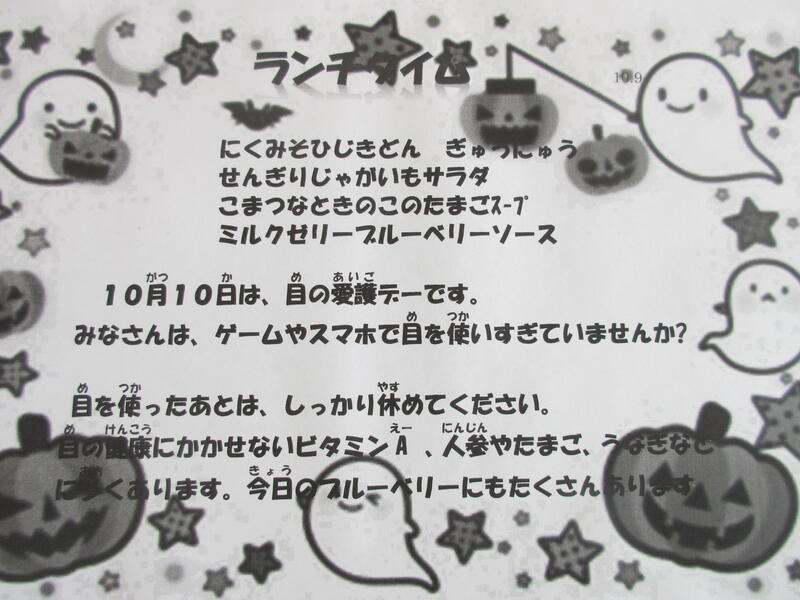 ランチタイム
10.9
にくみそひじきどん　ぎゅうにゅう
せんぎりじゃがいもサラダ
こまつなときのこのたまごｽｰﾌﾟ
ミルクゼリーブルーベリーソース
１０月１０日は、目の愛護デーです。
みなさんは、ゲームやスマホで目を使いすぎていませんか?
目を使ったあとは、しっかり休めてください。
目の健康にかかせないビタミンA 、人参やたまご、うなぎなど
に多くあります。今日のブルーベリーにもたくさんあります